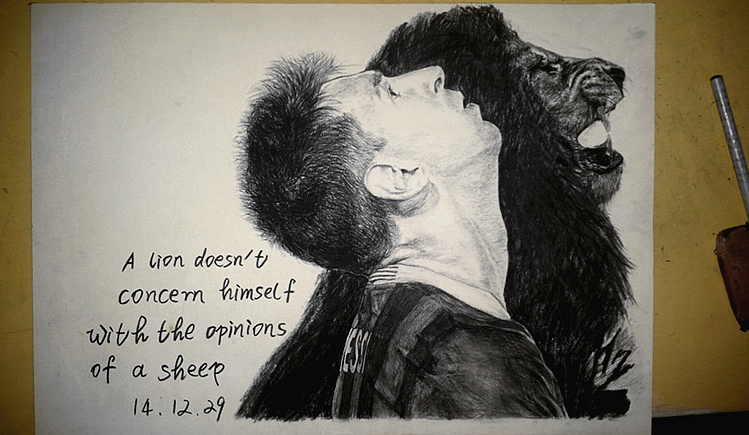 A lion doesn't
concern himself
with the opinions
of a sheep
14.12.29
ESSI